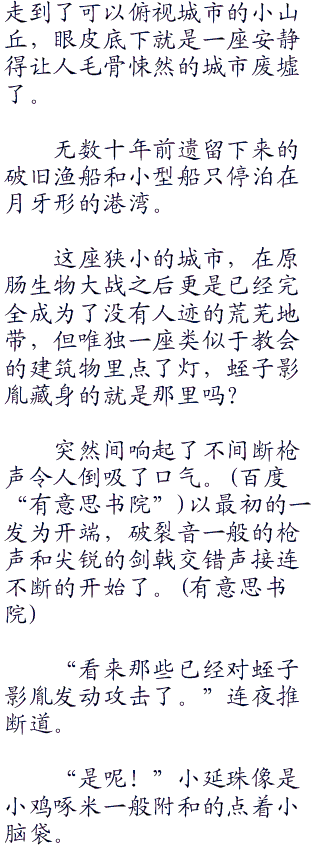 走到了可以俯视城市的小山
丘，眼皮底下就是一座安静
得让人毛骨悚然的城市废墟
了。
无数十年前遗留下来的
破旧渔船和小型船只停泊在
月牙形的港湾。
这座狭小的城市，在原
肠生物大战之后更是已经完
全成为了没有人迹的荒芜地
带，但唯独一座类似于教会
的建筑物里点了灯，蛭子影
胤藏身的就是那里吗？
突然间响起了不间断枪
声令人倒吸了口气。(百度
“有意思书院”)以最初的一
发为开端，破裂音一般的枪
声和尖锐的剑戟交错声接连
不断的开始了。(有意思书
院)
“看来那些已经对蛭子
影胤发动攻击了。”连夜推
断道。
“是呢！”小延珠像是
小鸡啄米一般附和的点着小
脑袋。